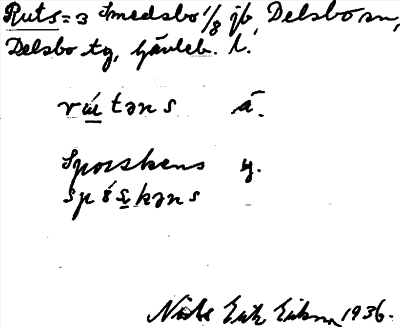 Ruts = 3 Smedsbo 1/8 jb, Delsbo sn,
Delsbo tg, Gävleb. l.
rútəns ä.
Sporskens y.
spóskəns
Nils Erik Eriksn 1936.